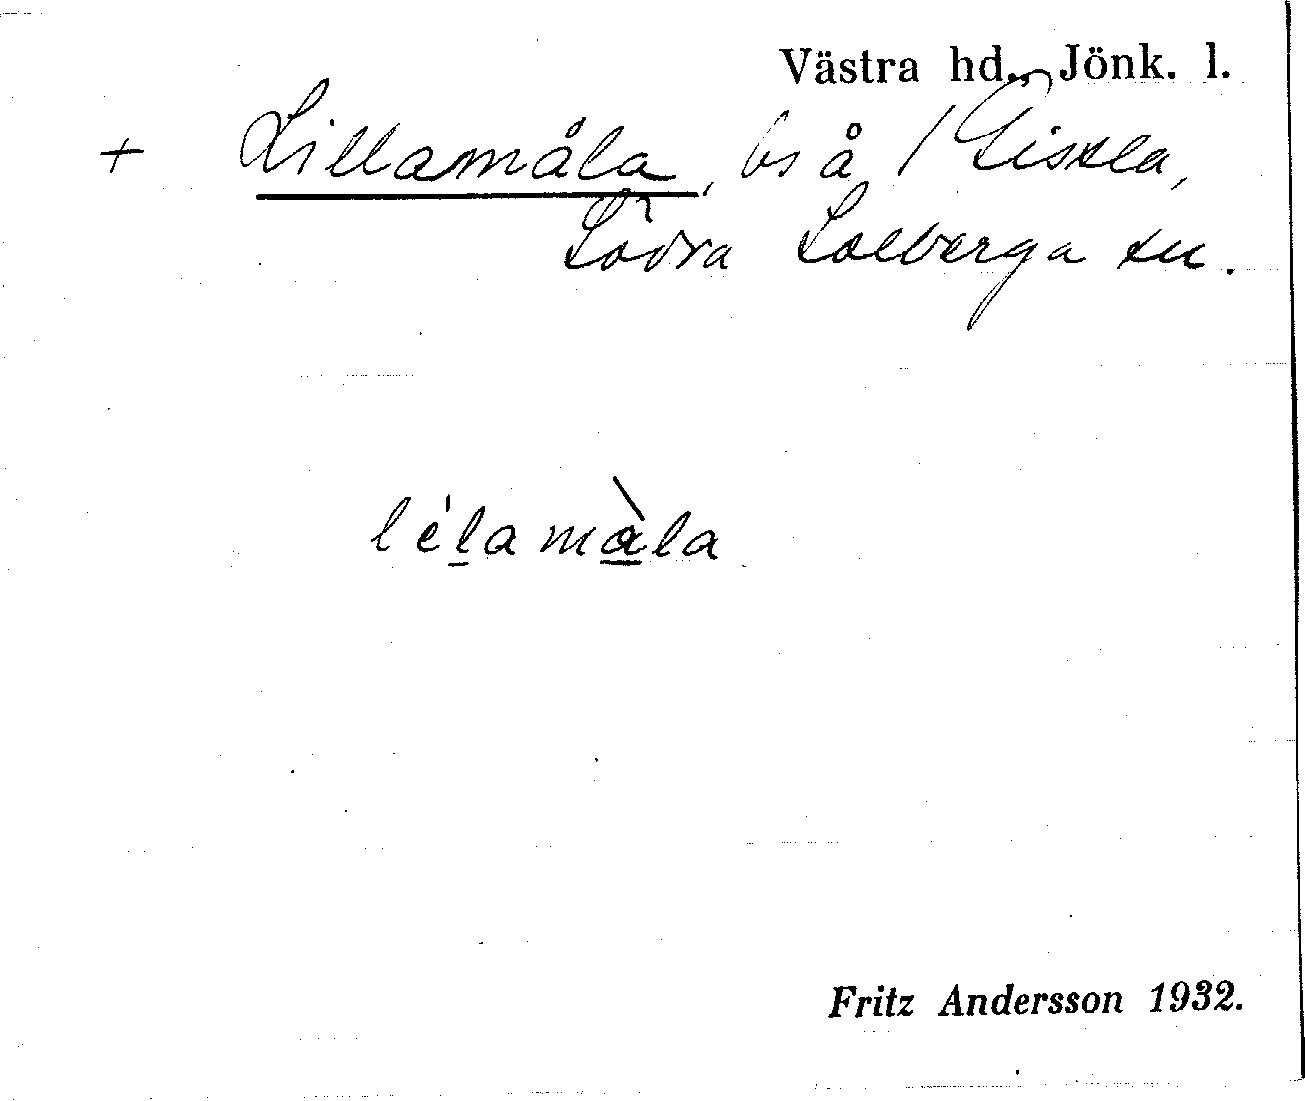 Västra hd., Jönk. l.
+ Lillamåla, bs å / Gissla,
Södra Solberga sn.
lélamàla
Fritz Andersson 1932.